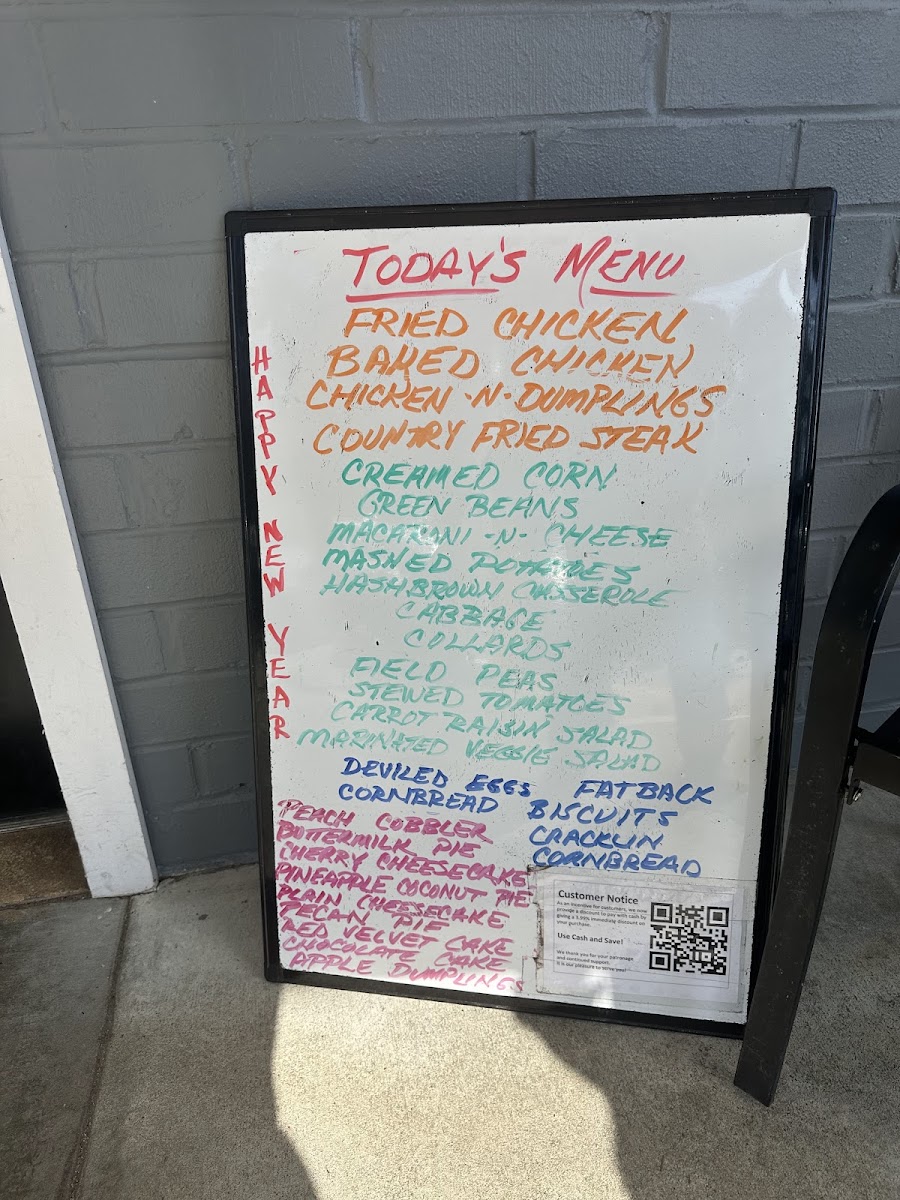 TODAY'S MENU
FRIED CHICKEN
BAKED CHICKEN
CHICKEN -N- DUMPLINGS
COUNTRY FRIED STEAK
CREAMED CORN
GREEN BEANS
MACARONI -N- CHEESE
MASHED POTATOES
HASHBROWN CASSEROLE
CABBAGE
COLLARDS
FIELD PEAS
STEWED TOMATOES
CARROT RAISIN SALAD
MARINATED VEGGIE SALAD
DEVILED EGGS
CORNBREAD
FATBACK
BISCUITS
CRACKLIN
CORNBREAD
PEACH COBBLER
BUTTERMILK PIE
CHERRY CHEESECAKE
PINEAPPLE COCONUT PIE
PLAIN CHEESECAKE
PECAN PIE
RED VELVET CAKE
CHOCOLATE CAKE
APPLE DUMPLINGS
HAPPY NEW YEAR
Customer Notice
As an incentive for customers, we now
provide a discount to pay with cash by
giving a 3.99% immediate discount on
your purchase.
Use Cash and Save!
We thank you for your patronage
and continued support.
It is our pleasure to serve you!